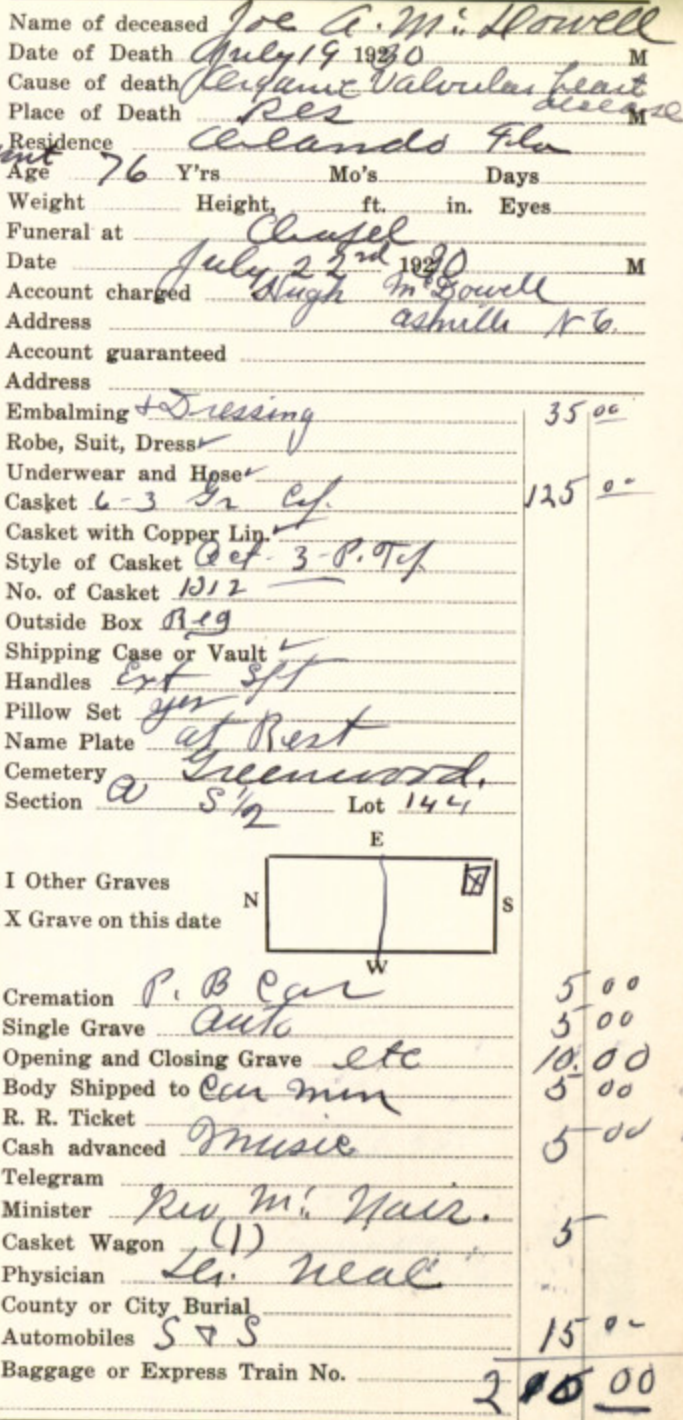 Name of deceased Joe A. Mc Dowell
Date of Death July 19 1930 M
Cause of death Organic Valvular heart disease
Place of Death Res M
Residence Orlando Fla
Age 76 Y'rs Mo's Days
Weight Height, ft. in. Eyes
Funeral at Chapel
Date July 22nd 1930 M
Account charged Hugh McDowell
Address Ashville N C.
Account guaranteed
Address
Embalming & Dressing 35 00
Robe, Suit, Dress ✓
Underwear and Hose ✓
Casket 6-3 Gr 125 00
Casket with Copper Lin. ✓
Style of Casket Oct - 3 - P.
No. of Casket 1312
Outside Box Reg
Shipping Case or Vault ✓
Handles Ext
Pillow Set yes
Name Plate at Rest
Cemetery Greenwood.
Section A S 1/2 Lot 144
E
I Other Graves
N S
X Grave on this date
X
W
Cremation P. B Car 5 00
Single Grave Auto 5 00
Opening and Closing Grave etc 10.00
Body Shipped to Car men 5 00
R. R. Ticket
Cash advanced Music 5 00
Telegram
Minister Rev Mc Nair.
Casket Wagon (1) 5
Physician Dr. Neal
County or City Burial
Automobiles S & S 15 00
Baggage or Express Train No.
2 10 00